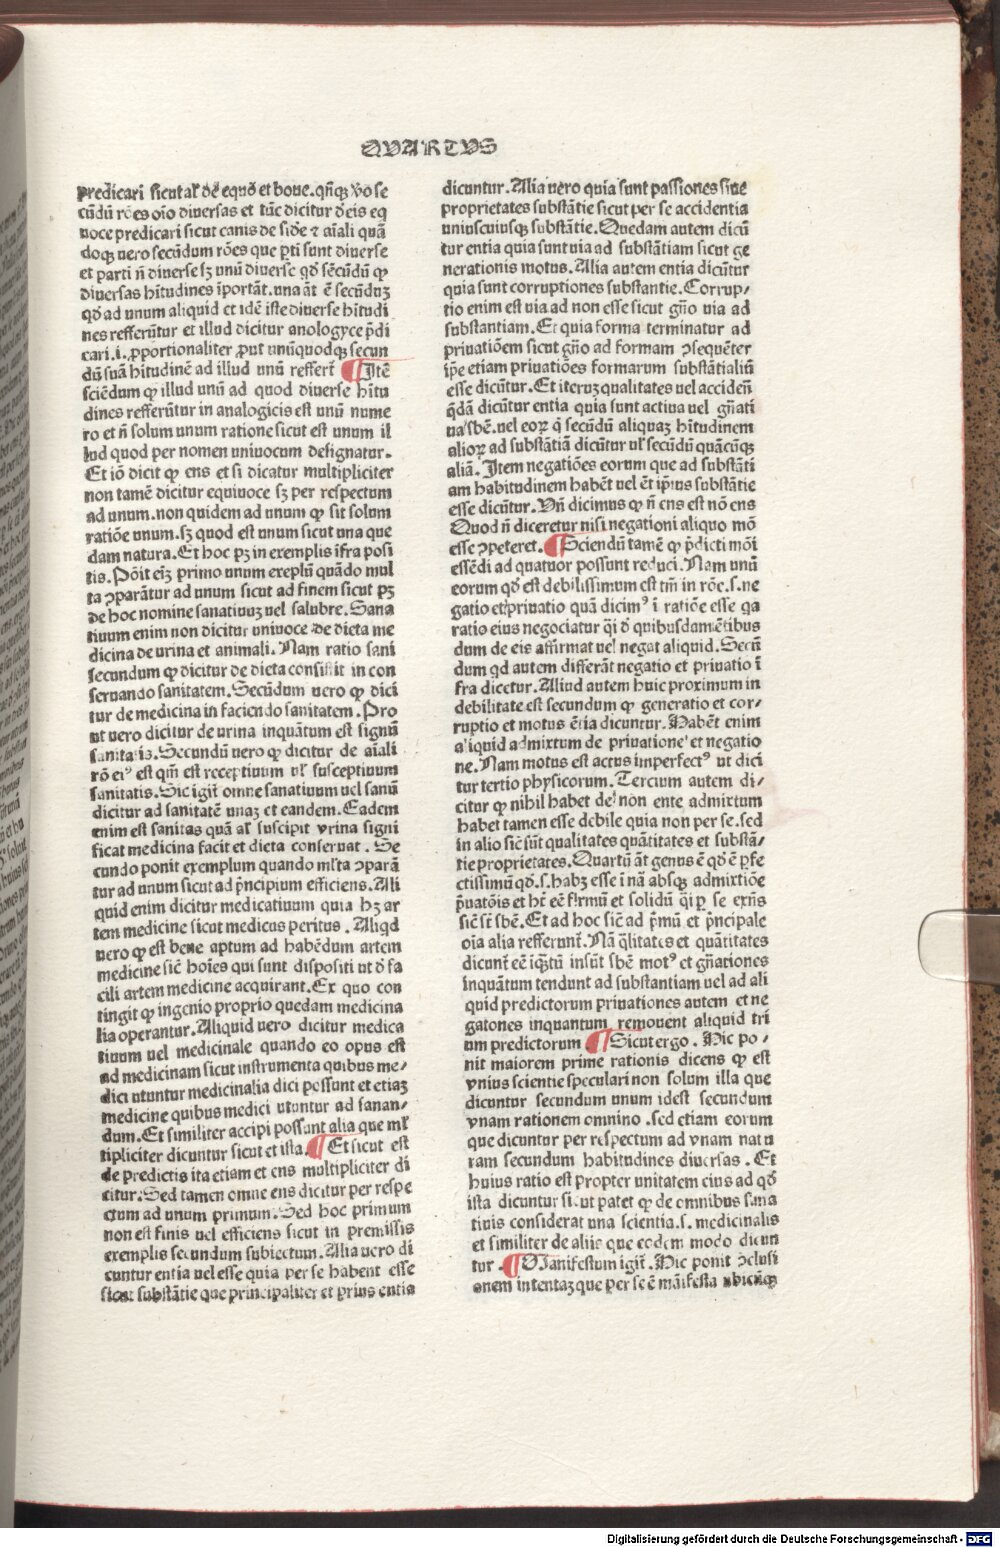 QVARTVS
predicari sicut aĩal dẽ equo et boue. qñqꝫ vo se
cũdũ rões oĩo diuersas et tũc dicitur deis eq
uoce predicari sicut canis de side ⁊ aĩali quã
doqꝫ uero secũdum rões que ꝑti sunt diuerse
et parti ñ diuerse sꝫ unũ diuerse qđ sẽcũdũ ꝙ
diuersas hĩtudines ĩportãt. una aũt ẽ secũduꝫ
qđ ad unum aliquid et idẽ iste diuerse hĩtudi
nes refferũtur et illud dicitur anologyce p̃di
cari .i. ꝓportionaliter ꝓut unũquodqꝫ secun
dũ suã hĩtudinẽ ad illud unũ reffert̃ ¶ Itẽ
sciẽdum ꝙ illud unũ ad quod diuerse hĩtu
dines refferũtur in analogicis est unũ nume
ro et ñ solum unum ratione sicut est unum il
lud quod per nomen uniuocum designatur.
Et iõ dicit ꝙ ens et si dicatur multipliciter
non tamẽ dicitur equiuoce sꝫ per respectum
ad unum. non quidem ad unum ꝙ sit solum
ratiõe unum. sꝫ quod est unum sicut una que
dam natura. Et hoc pꝫ in exemplis ĩfra posi
tis. Põit eĩꝫ primo unum exeplũ quãdo mul
ta ꝯparãtur ad unum sicut ad finem sicut pꝫ
de hoc nomine sanatiuuꝫ uel salubre. Sana
tiuum enim non dicitur uniuoce de dieta me
dicina de urina et animali. Nam ratio sani
secundum ꝙ dicitur de dieta consistit in con
seruando sanitatem. Secũdum uero ꝙ dici
tur de medicina in faciendo sanitatem. Pro
ut uero dicitur de urina inquãtum est signũ
sanitatis. Secundũ uero ꝙ dicitur de aĩali
rõ eiꝰ est qm̃ est receptiuum uľ susceptiuum
sanitatis. Sic igit̃ omne sanatiuum uel sanũ
dicitur ad sanitatẽ unaꝫ et eandem. Eadem
enim est sanitas quã aľ suscipit vrina signi
ficat medicina facit et dieta conseruat. Se
cundo ponit exemplum quando mľta ꝯparã
tur ad unum sicut ad p̃ncipium efficiens. Ali
quid enim dicitur medicatiuum quia hꝫ ar
tem medicine sicut medicus peritus. Aliqd
uero ꝙ est bene aptum ad habẽdum artem
medicine sic̃ hoĩes qui sunt dispositi ut đ fa
cili artem medicine acquirant. Ex quo con
tingit ꝙ ingenio proprio quedam medicina
lia operantur. Aliquid uero dicitur medica
tiuum uel medicinale quando eo opus est
ad medicinam sicut instrumenta quibus me/
dici utuntur medicinalia dici possunt et etiaꝫ
medicine quibus medici utuntur ad sanan/
dum. Et similiter accipi possunt alia que mľ
tipliciter dicuntur sicut et ista. ¶ Et sicut est
de predictis ita etiam et ens multipliciter di
citur. Sed tamen omne ens dicitur per respe
ctum ad unum primum. Sed hoc primum
non est finis uel efficiens sicut in premissis
exemplis secundum subiectum. Alia uero di
cuntur entia uel esse quia per se habent esse
sicut substãtie que principaliter et prius entia
dicuntur. Alia uero quia sunt passiones siue
proprietates substãtie sicut per se accidentia
uniuscuiusqꝫ substãtie. Quedam autem dicũ
tur entia quia sunt uia ad substãtiam sicut ge
nerationis motus. Alia autem entia dicũtur
quia sunt corruptiones substantie. Corrup/
tio enim est uia ad non esse sicut gñio uia ad
substantiam. Et quia forma terminatur ad
priuatiõem sicut gñio ad formam ꝯsequẽter
ip̃e etiam priuatiões formarum substãtialiũ
esse dicũtur. Et iteruꝫ qualitates uel acciden̄
q̃dã dicũtur entia quia sunt actiua uel gñati
ua sbẽ. uel eoꝝ q̃ secũdũ aliquaꝫ hĩtudinem
alioꝝ ad substãtiã dicũtur uľ secũdũ quãcũqꝫ
aliã. Item negatiões eorum que ad substãti
am habitudinem habẽt uel ẽt ip̃ius substãtie
esse dicũtur. Vñ dicimus ꝙ ñ ens est nõ ens
Quod ñ diceretur nisi negationi aliquo mõ
esse ꝯpeteret. ¶ Sciendũ tamẽ ꝙ p̃dicti mõi
essẽdi ad quatuor possunt reduci. Nam unũ
eorum qđ est debilissimum est tm̃ in rõe .s. ne
gatio et priuatio quã dicimꝰ ĩ ratiõe esse qa
ratio eius negociatur q̃i đ quibusdam ẽtibus
dum de eis affirmat uel negat aliquid. Secũ
dum qd autem differãt negatio et priuatio ĩ
fra dicetur. Aliud autem huic proximum in
debilitate est secundum ꝙ generatio et cor/
ruptio et motus ẽtia dicuntur. Habẽt enim
aliquid admixtum de priuatione et negatio
ne. Nam motus est actus imperfectꝰ ut dici
tur tertio physicorum. Tercium autem di/
citur ꝙ nihil habet de non ente admixtum
habet tamen esse debile quia non per se. sed
in alio sic̃ sũt qualitates quãtitates et substã/
tie proprietates. Quartũ aũt genus ẽ qđ ẽ ꝑfe
ctissimũ qđ .s. habꝫ esse ĩ nã absqꝫ admixtiõe
p̃uatõis et hẽt eẽ firmũ et solidũ q̃i ꝑ se exñs
sic̃ sũt sbẽ. Et ad hoc sic̃ ad p̃mũ et p̃ncipale
oĩa alia refferunt̃. Nã q̃litates et quãtitates
dicunt̃ eẽ iq̃ꝫtũ insũt sbẽ motꝰ et gñationes
inquãtum tendunt ad substantiam uel ad ali
quid predictorum priuationes autem et ne
gatones inquantum remouent aliquid tri
um predictorum ¶ Sicut ergo. Hic po/
nit maiorem prime rationis dicens ꝙ est
vnius scientie speculari non solum illa que
dicuntur secundum unum idest secundum
vnam rationem omnino. sed etiam eorum
que dicuntur per respectum ad vnam natu
ram secundum habitudines diuersas. Et
huius ratio est propter unitatem eius ad qđ
ista dicuntur sicut patet ꝙ de omnibus sana
tiuis considerat una scientia .s. medicinalis
et similiter de aliis que eodem modo dicun
tur. ¶ Manifestum igit̃. Hic ponit ꝯclusi
onem intentaꝫ que per se ẽ mãifesta vbicũqꝫ
Digitalisierung gefördert durch die Deutsche Forschungsgemeinschaft - DFG